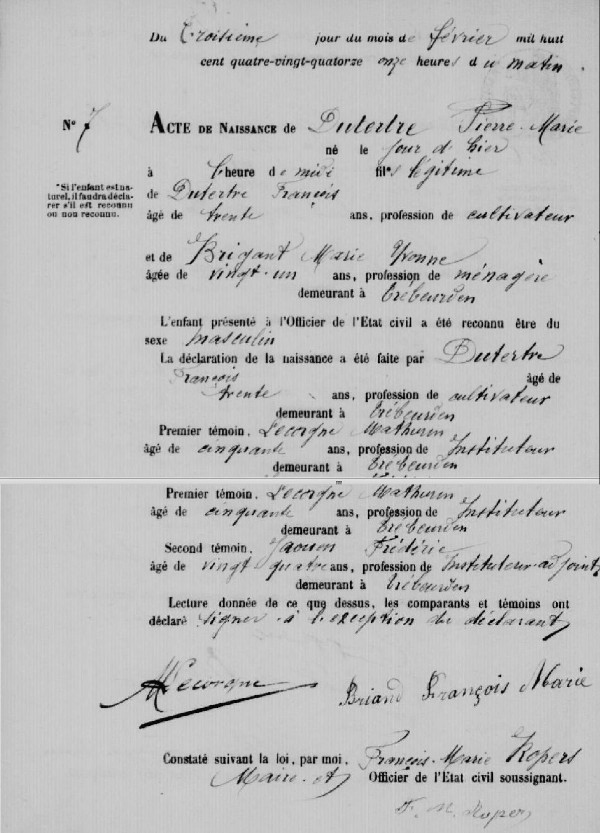 Du troisième jour du mois de février mil huit
cent quatre-vingt-quatorze onze heures du matin.
N° 7
ACTE DE NAISSANCE de Dutertre Pierre-Marie
né le jour d'hier
à l'heure de midi fils légitime
*Si l'enfant est na-
turel, il faudra décla-
rer s'il est reconnu
ou non reconnu.
de Dutertre François
âgé de trente ans, profession de cultivateur
et de Brigant Marie Yvonne
âgée de vingt-un ans, profession de ménagère
demeurant à Trébeurden
L'enfant présenté à l'Officier de l'Etat civil a été reconnu être du
sexe masculin
La déclaration de la naissance a été faite par Dutertre
François âgé de
trente ans, profession de cultivateur
demeurant à Trébeurden
Premier témoin, Lecorgne Mathurin
âgé de cinquante ans, profession de Instituteur
demeurant à Trébeurden
Premier témoin, Lecorgne Mathurin
âgé de cinquante ans, profession de Instituteur
demeurant à Trébeurden
Second témoin, Jaouen Frédéric
âgé de vingt quatre ans, profession de Instituteur adjoint
demeurant à Trébeurden
Lecture donnée de ce que dessus, les comparants et témoins ont
déclaré signer à l'exception du déclarant
MLecorgne
Briand François Marie
Constaté suivant la loi, par moi, François-Marie Ropers
Maire et Officier de l'Etat civil soussigné.
F. M. Ropers